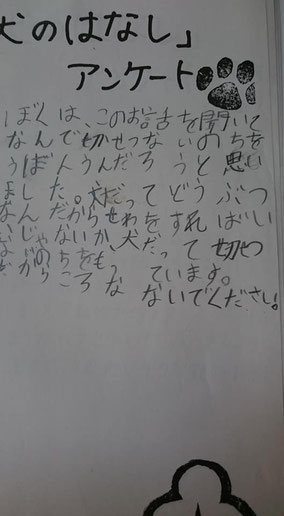 犬のはなし」
アンケート
ぼくは、このお話を聞いて
なんで切せつないのちを
うばんうんだろうと思い
ました。犬だってどうぶつ
なんだからせわをすればい
いじゃないか、犬だって切せつ
ないのちをもっています。
だからころさないでください。